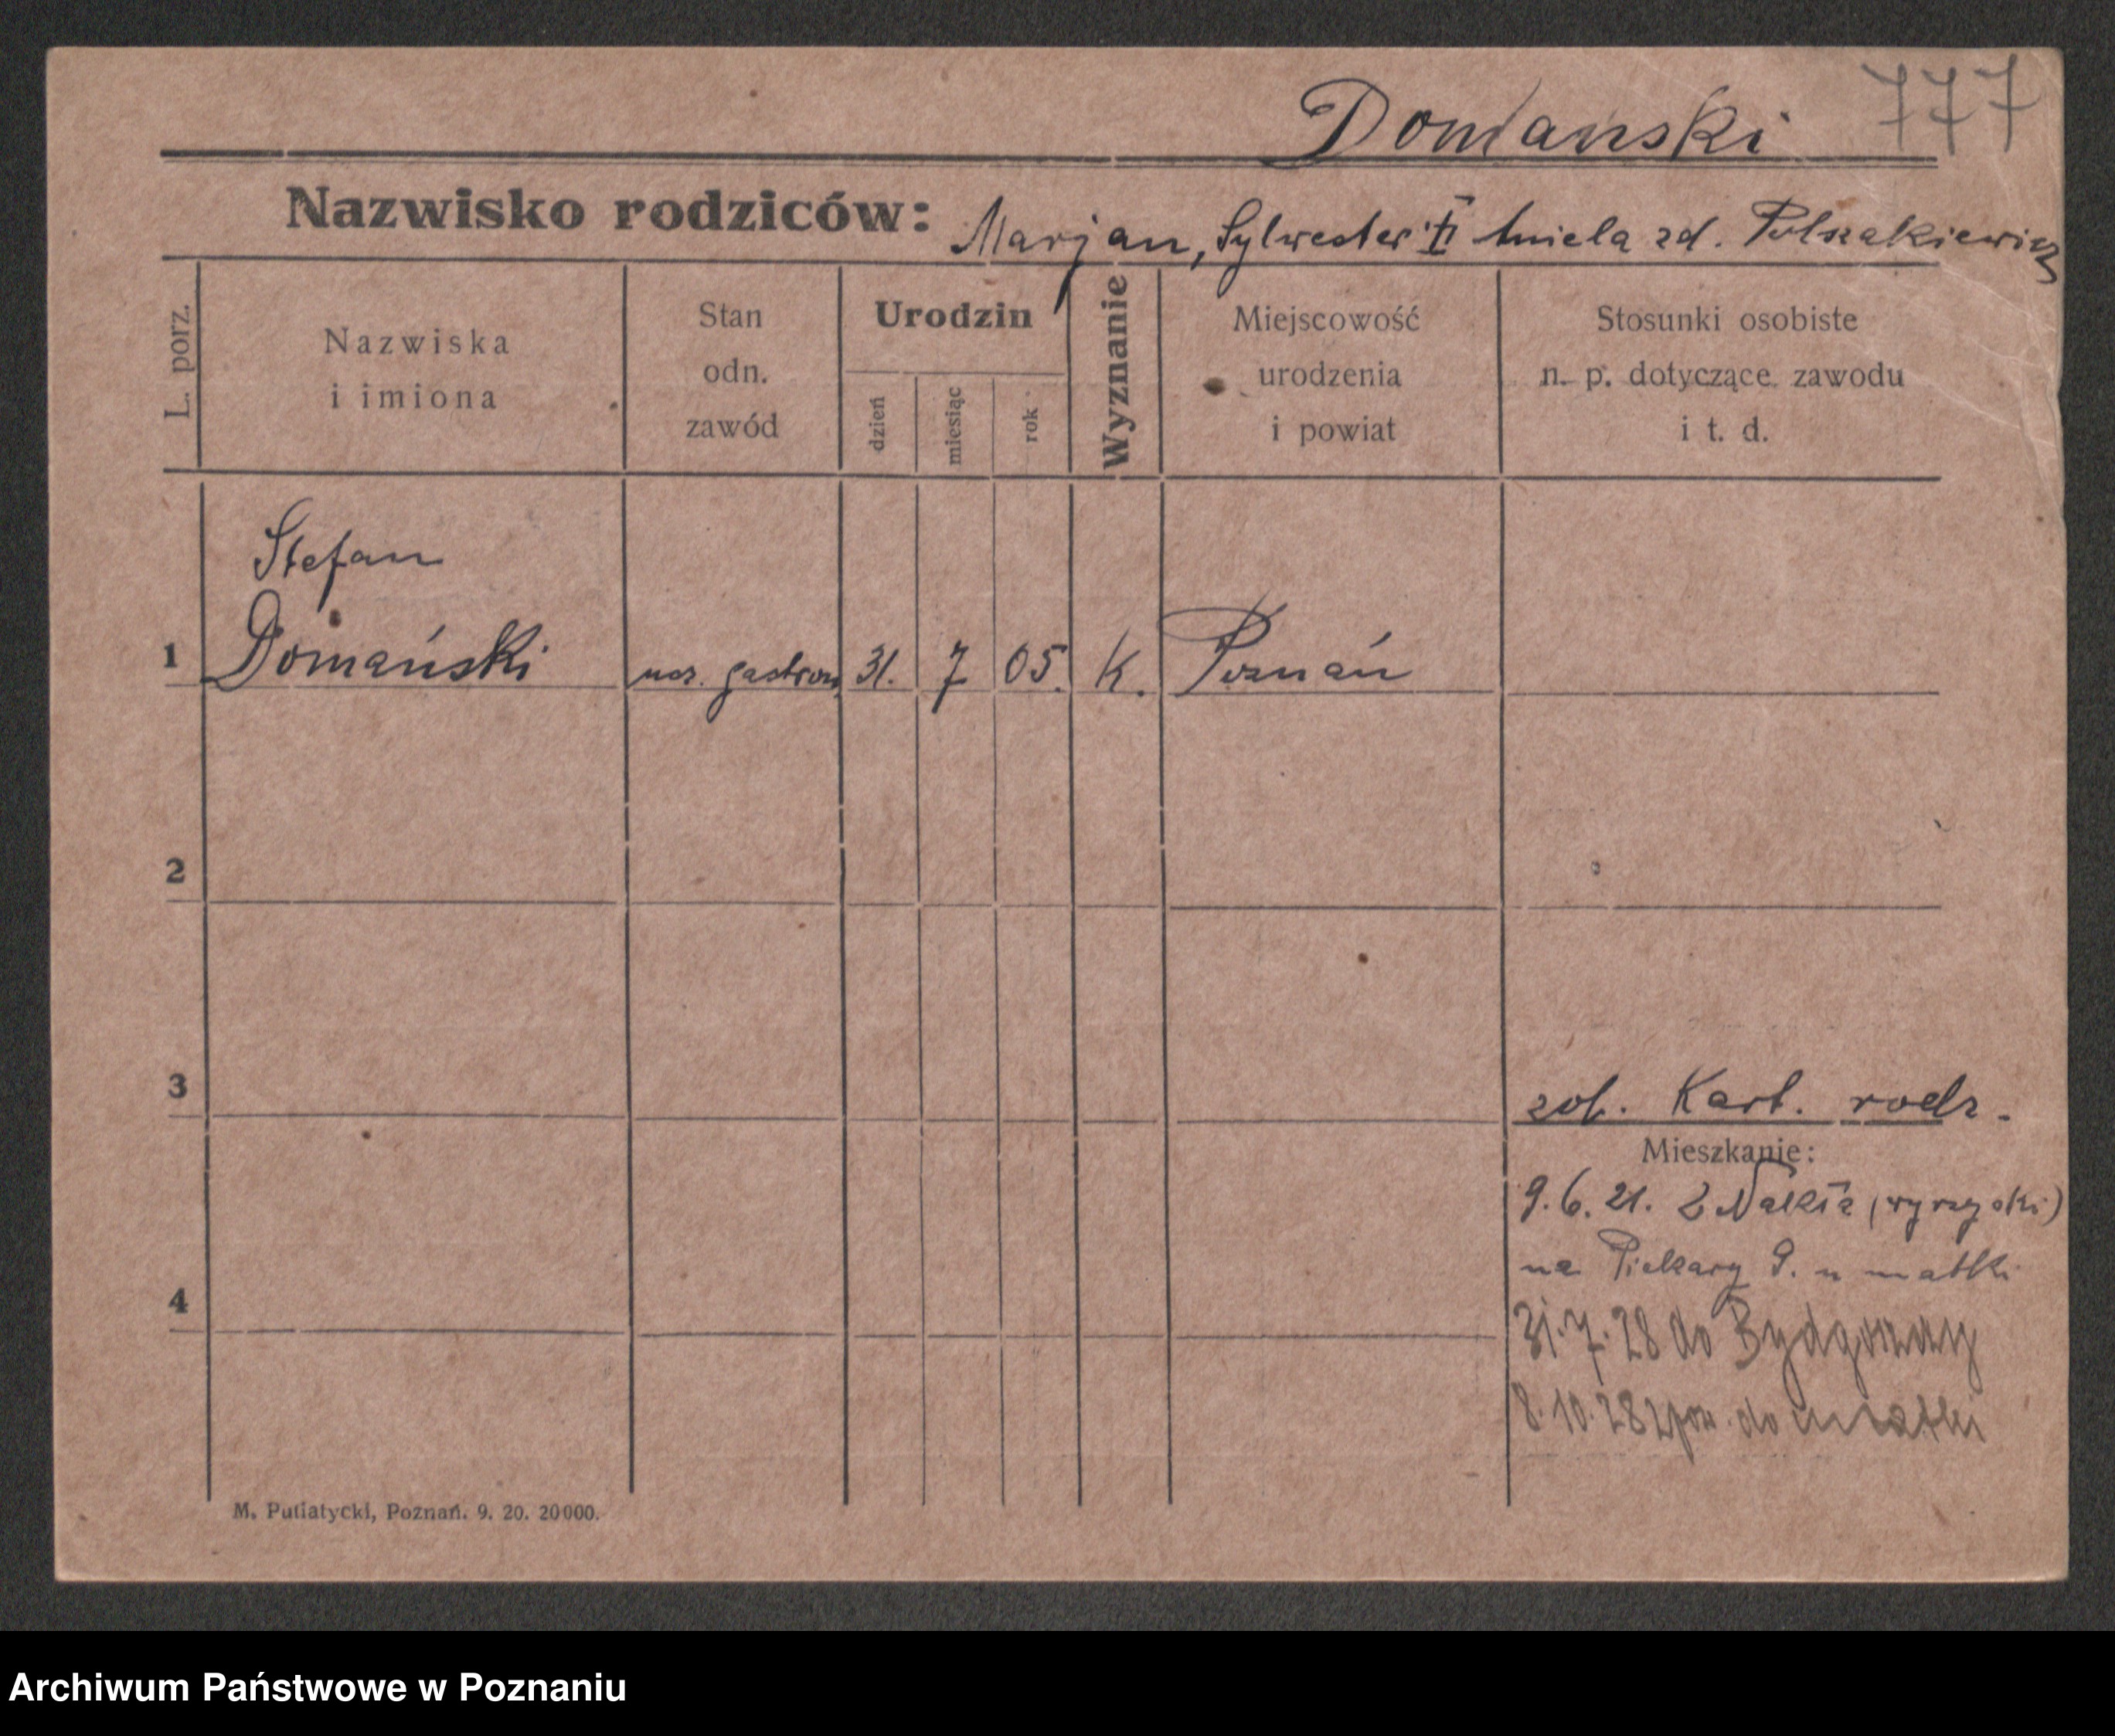 777
Domański
Nazwisko rodziców: Marjan, Sylwester Aniela zd.
L. porz.
Nazwiska
i imiona
Stan
odn.
zawód
Urodzin
dzień
miesiąc
rok
Wyznanie
Miejscowość
urodzenia
i powiat
Stosunki osobiste
n. p. dotyczące zawodu
i t. d.
Stefan
1 Domański ucz. gastron. 31. 7 05. K. Poznań
2
3
zob. Kart. rodz.
Mieszkanie:
9.6.21. z Nakła (wyrzyski)
na Piekary 9. u matki
4
31.7.28 do Bydgoszczy
8.10.28 z pow. do matki
M. Putiatycki, Poznań. 9. 20. 20000.
Archiwum Państwowe w Poznaniu